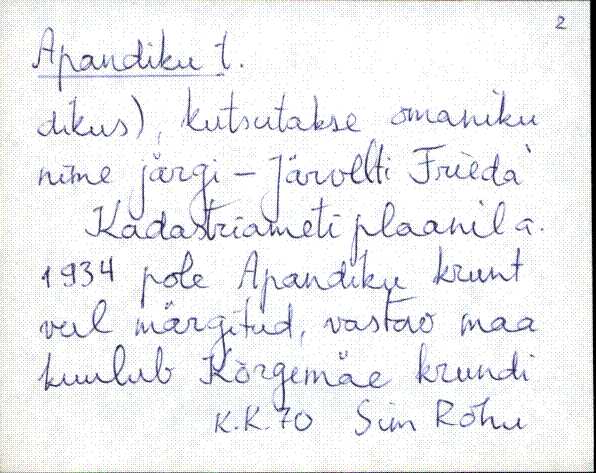 2
Apandiku t.
dikus), kutsutakse omaniku
nime järgi – Järvelti Frieda'
Kadastriameti plaanil a.
1934 pole Apandiku krunt
veel märgitud, vastav maa
kuulub Kõrgemäe krundi
K.K.70 Siim Rõhu